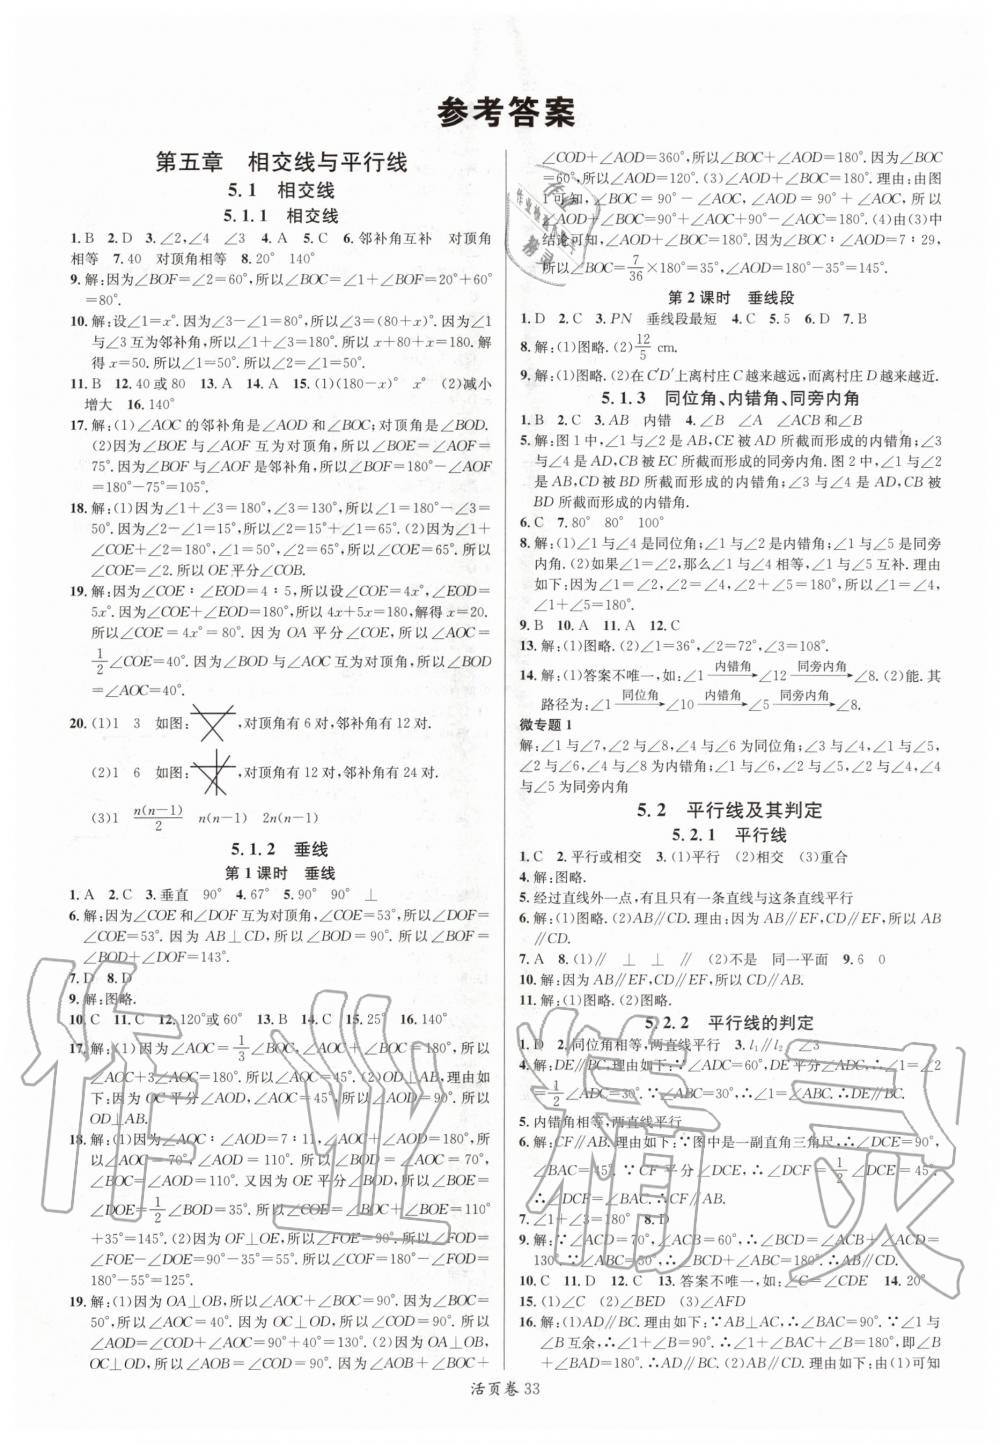 参考答案
第五章　相交线与平行线
5.1　相交线
5.1.1　相交线
1.B　2.D　3.∠2,∠4　∠3　4.A　5.C　6.邻补角互补　对顶角
相等　7.40　对顶角相等　8.20°　140°
9.解:因为∠BOF=∠2=60°,所以∠BOC=∠1+∠BOF=20°+60°
=80°.
10.解:设∠1=x°.因为∠3-∠1=80°,所以∠3=(80+x)°.因为∠1
与∠3互为邻补角,所以∠1+∠3=180°.所以x+80+x=180.解
得x=50.所以∠1=50°.所以∠2=∠1=50°.
11.B　12.40或80　13.A　14.A　15.(1)(180-x)°　x°　(2)减小
增大　16.140°
17.解:(1)∠AOC的邻补角是∠AOD和∠BOC;对顶角是∠BOD.
(2)因为∠BOE与∠AOF互为对顶角,所以∠BOE=∠AOF=
75°.因为∠BOF与∠AOF是邻补角,所以∠BOF=180°-∠AOF
=180°-75°=105°.
18.解:(1)因为∠1+∠3=180°,∠3=130°,所以∠1=180°-∠3=
50°.因为∠2-∠1=15°,所以∠2=15°+∠1=65°.(2)因为∠1+
∠COE+∠2=180°,∠1=50°,∠2=65°,所以∠COE=65°.所以
∠COE=∠2.所以OE平分∠COB.
19.解:因为∠COE∶∠EOD=4∶5,所以设∠COE=4x°,∠EOD=
5x°.因为∠COE+∠EOD=180°,所以4x+5x=180,解得x=20.
所以∠COE=4x°=80°.因为OA平分∠COE,所以∠AOC=
1/2∠COE=40°.因为∠BOD与∠AOC互为对顶角,所以∠BOD
=∠AOC=40°.
20.(1)1　3　如图:,对顶角有6对,邻补角有12对.
(2)1　6　如图:,对顶角有12对,邻补角有24对.
(3)1　n(n-1)/2　n(n-1)　2n(n-1)
5.1.2　垂线
第1课时　垂线
1.A　2.C　3.垂直　90°　4.67°　5.90　90°　⊥
6.解:因为∠COE和∠DOF互为对顶角,∠COE=53°,所以∠DOF=
∠COE=53°.因为AB⊥CD,所以∠BOD=90°.所以∠BOF=
∠BOD+∠DOF=143°.
7.D　8.D
9.解:图略.
10.C　11.C　12.120°或60°　13.B　14.C　15.25°　16.140°
17.解:(1)因为∠AOC=1/3∠BOC,∠AOC+∠BOC=180°,所以
∠AOC+3∠AOC=180°.所以∠AOC=45°.(2)OD⊥AB.理由如
下:因为OC平分∠AOD,所以∠COD=∠AOC=45°.所以∠AOD=90°.所以
OD⊥AB.
18.解:(1)因为∠AOC∶∠AOD=7∶11,∠AOC+∠AOD=180°,所
以∠AOC=70°,∠AOD=110°.所以∠BOD=∠AOC=70°,
∠BOC=∠AOD=110°.又因为OE平分∠BOD,所以∠BOE=
∠DOE=1/2∠BOD=35°.所以∠COE=∠BOC+∠BOE=110°
+35°=145°.(2)因为OF⊥OE,所以∠FOE=90°.所以∠FOD=
∠FOE-∠DOE=90°-35°=55°.所以∠COF=180°-∠FOD=
180°-55°=125°.
19.解:(1)因为OA⊥OB,所以∠AOC+∠BOC=90°.因为∠BOC=
50°,所以∠AOC=40°.因为OC⊥OD,所以∠COD=90°.所以
∠AOD=∠COD+∠AOC=90°+40°=130°.(2)因为OA⊥OB,
OC⊥OD,所以∠AOB=∠COD=90°.因为∠AOB+∠BOC+
∠COD+∠AOD=360°,所以∠BOC+∠AOD=180°.因为∠BOC
=60°,所以∠AOD=120°.(3)∠AOD+∠BOC=180°.理由:由图
1可知,∠BOC=90°-∠AOC,∠AOD=90°+∠AOC,所以
∠AOD+∠BOC=90°+∠AOC+90°-∠AOC=180°.(4)由(3)中
结论可知,∠BOC+∠AOD=180°.因为∠BOC∶∠AOD=7∶29,
所以∠BOC=7/36×180°=35°,∠AOD=180°-35°=145°.
第2课时　垂线段
1.D　2.C　3.PN　垂线段最短　4.C　5.5　6.D　7.B
8.解:(1)图略.(2)12/5 cm.
9.解:(1)图略.(2)在C′D′上离村庄C越来越远,而离村庄D越来越近.
5.1.3　同位角、内错角、同旁内角
1.B　2.C　3.AB　内错　4.∠B　∠A　∠ACB和∠B
5.解:图1中,∠1与∠2是AB,CE被AD所截而形成的内错角,∠3
与∠4是AD,CB被EC所截而形成的同旁内角.图2中,∠1与∠2
是AB,CD被BD所截而形成的内错角;∠3与∠4是AD,CB被
BD所截而形成的内错角.
6.C　7.80°　80°　100°
8.解:(1)∠1与∠4是同位角;∠1与∠2是内错角;∠1与∠5是同旁
内角.(2)如果∠1=∠2,那么∠1与∠4相等,∠1与∠5互补.理由
如下:因为∠1=∠2,∠2=∠4,∠2+∠5=180°,所以∠1=∠4,
∠1+∠5=180°.
9.B　10.A　11.A　12.C
13.解:(1)图略.(2)∠1=36°,∠2=72°,∠3=108°.
14.解:(1)答案不唯一,如:∠1 内错角→∠12 同旁内角→∠8.(2)能.其
路径为:∠1 同位角→∠10 内错角→∠5 同旁内角→∠8.
微专题1
解:∠1与∠7,∠2与∠8,∠4与∠6为同位角;∠3与∠4,∠1与∠5,
∠2与∠6,∠4与∠8为内错角;∠2与∠4,∠2与∠5,∠3与∠6,∠4
与∠5为同旁内角
5.2　平行线及其判定
5.2.1　平行线
1.C　2.平行或相交　3.(1)平行　(2)相交　(3)重合
4.解:图略.
5.经过直线外一点,有且只有一条直线与这条直线平行
6.解:(1)图略.(2)AB∥CD.理由:因为AB∥EF,CD∥EF,所以AB
∥CD.
7.A　8.(1)∥　⊥　⊥　∥　(2)不是　同一平面　9.6　0
10.解:因为AB∥EF,CD∥EF,所以CD∥AB.
11.解:(1)图略.(2)图略.
5.2.2　平行线的判定
1.D　2.同位角相等,两直线平行　3.l₁∥l₂　∠3
4.解:DE∥BC.理由如下:∵∠ADC=60°,DE平分∠ADC,∴∠1=∠2
=1/2∠ADC=30°.∵∠ABC=30°,∴∠1=∠ABC.∴DE∥BC.
5.内错角相等,两直线平行
6.解:CF∥AB.理由如下:∵图中是一副直角三角尺,∴∠DCE=90°,
∠BAC=45°.∵CF平分∠DCE,∴∠DCF=1/2∠DCE=45°.
∴∠DCF=∠BAC.∴CF∥AB.
7.∠1+∠3=180°　8.D
9.解:∵∠ACD=70°,∠ACB=60°,∴∠BCD=∠ACB+∠ACD=
130°.∵∠ABC=50°,∴∠BCD+∠ABC=180°.∴AB∥CD.
10.C　11.D　12.C　13.答案不唯一,如:∠C=∠CDE　14.20°
15.(1)∠C　(2)∠BED　(3)∠AFD
16.解:(1)AD∥BC.理由如下:∵AB⊥AC,∴∠BAC=90°.∵∠1与
∠B互余,∴∠1+∠B=90°.∴∠1+∠BAC+∠B=180°,即∠B
+∠BAD=180°.∴AD∥BC.(2)AB∥CD.理由如下:由(1)可知
活页卷 33
作业精灵